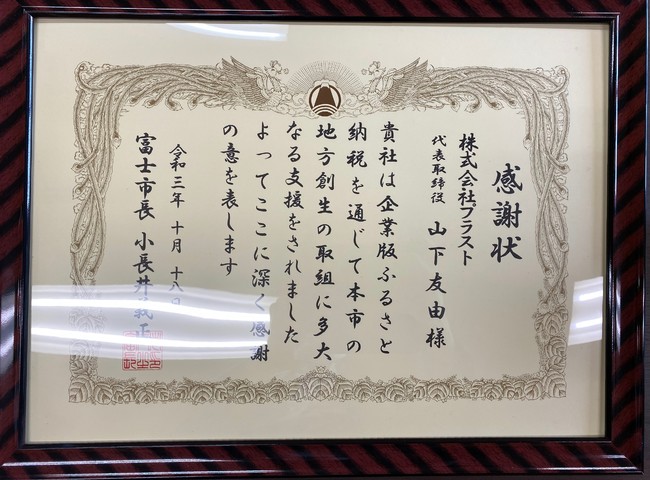 感謝状
株式会社プラスト
代表取締役 山下友由様
貴社は企業版ふるさと
納税を通じて本市の
地方創生の取組に多大
なる支援をされました
よってここに深く感謝
の意を表します
令和三年 十月 十八日
富士市長 小長井義正